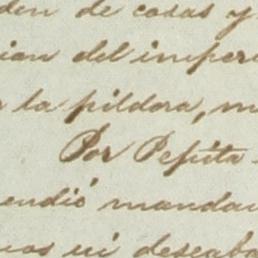 den de cosas y
cian del imper
r la píldora, m
Por Pepita
endió mandar
nos ni deseaba